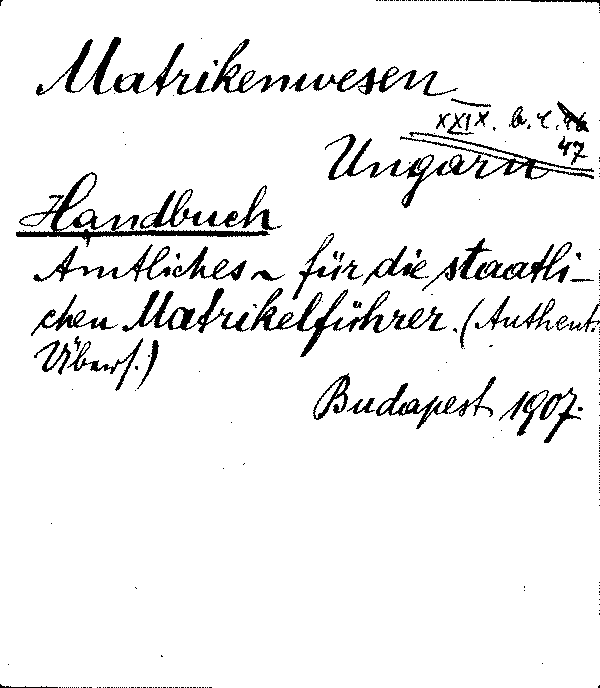 Matrikenwesen
XXIX. b. c. 46
47
Ungarn
Handbuch
Amtliches ~ für die staatli-
chen Matrikelführer. (Authent.
Übers.)
Budapest 1907.